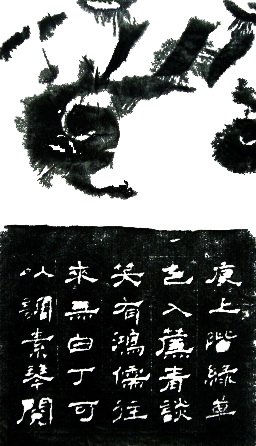 痕上階綠草
色入簾青談
笑有鴻儒往
來無白丁可
以調素琴閱